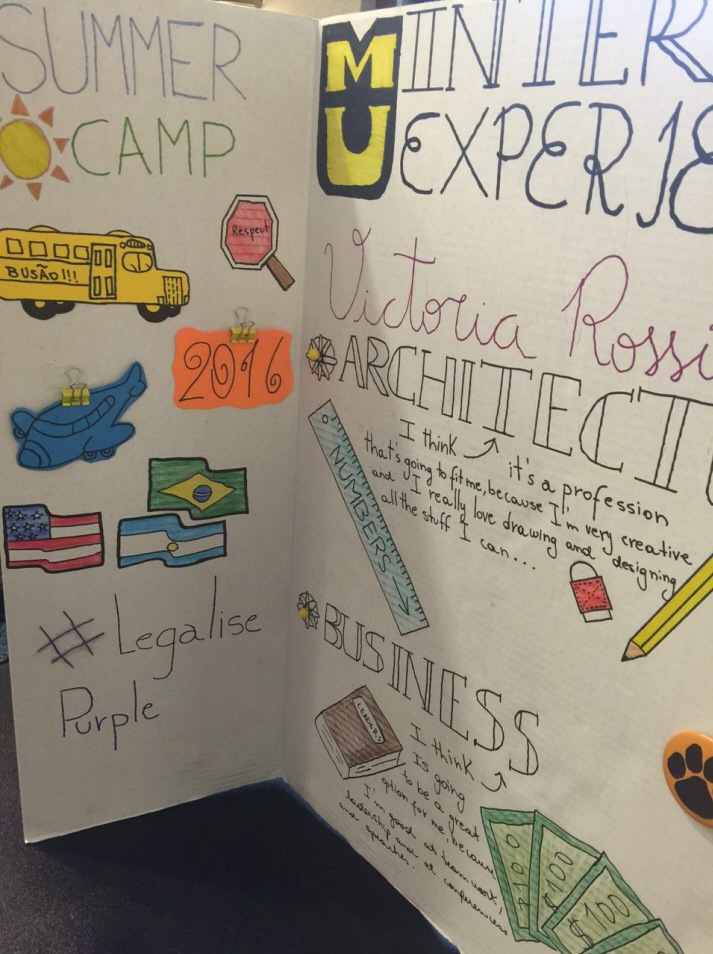 SUMMER
CAMP
Respect
BUSÃO!!!
2016
# Legalise
Purple
MU
INTER
EXPERIE
Victoria Rossi
ARCHITECTU
I think
it's a profession
that's going to fit me, because I'm very creative
and I really love drawing and designing
all the stuff I can...
NUMBERS
BUSINESS
LEADERS
I think
Is going
to be a great
option for me, because
I'm good at teamwork,
leadership and at conferences
and speaches.
$100
$100
$100